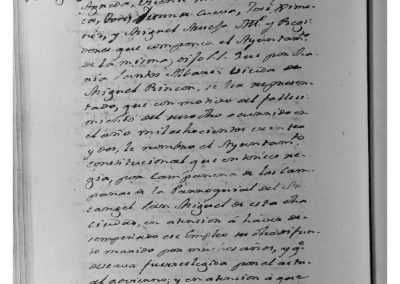 Agreda, Vicente
ca, Juan Aranda Cueva, José Xime-
nez, y Miguel Avesto Alg.s y Regi-
dores que componen el Ayuntam.to
de la misma, dijo: Que por Ma-
ria Santos Albanez Viuda de
Miguel Rincon, se ha represen-
tado, que con motivo del falleci-
miento del susodho ocurrido en
el año mil ochocientos veinte
y dos, le nombró el Ayuntam.to
constitucional que entonces re-
gia, por Campanera de las Cam-
panas de la Parroquial del Ar-
cangel San Miguel de esta dha
Ciudad, en atencion á haver de-
sempeñado ese Empleo su dho difun-
to marido por muchos años, y q.e
deseava fuera elegida por el actu-
al govierno, y en atencion á que